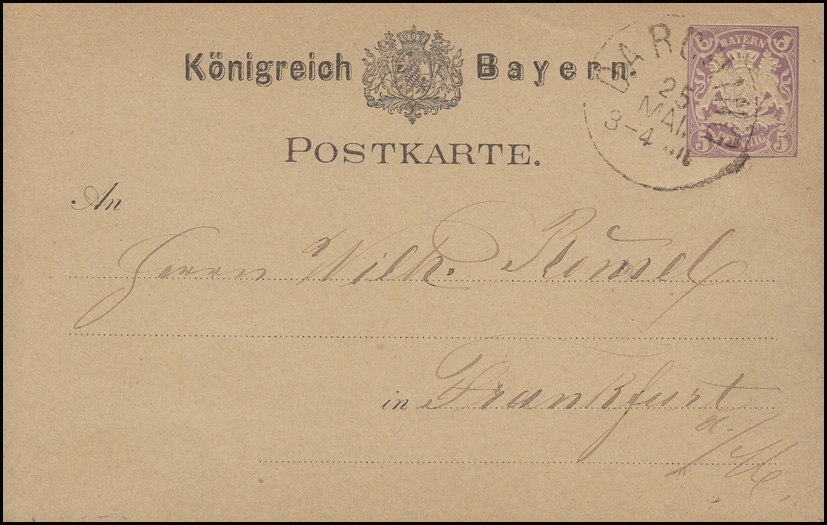 Königreich Bayern.
BAYERN
5 5
25
MAI
3-4
POSTKARTE.
An
Herrn Wilh.
in Frankfurt
a/M.